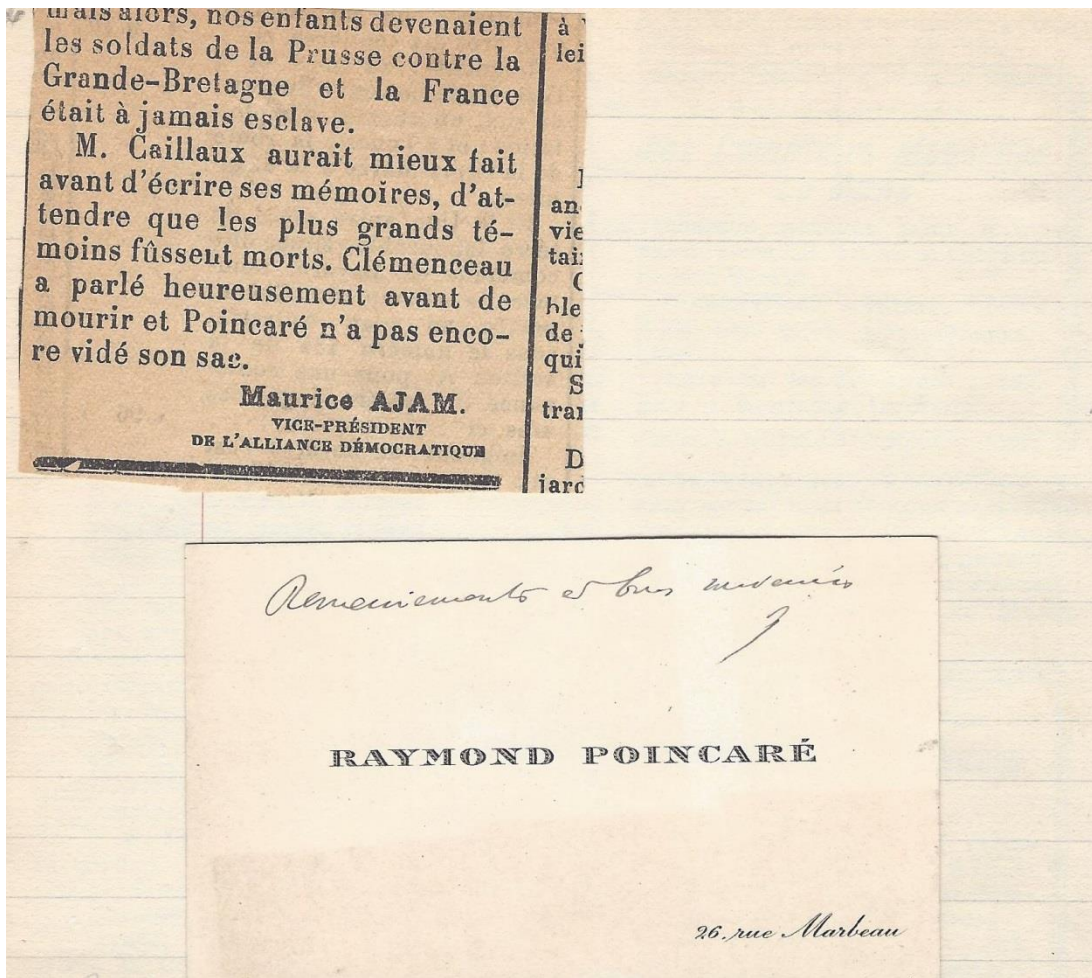 mais alors, nos enfants devenaient
les soldats de la Prusse contre la
Grande-Bretagne et la France
était à jamais esclave.
M. Caillaux aurait mieux fait
avant d'écrire ses mémoires, d'at-
tendre que les plus grands té-
moins fûssent morts. Clémenceau
a parlé heureusement avant de
mourir et Poincaré n'a pas enco-
re vidé son sac.
Maurice AJAM.
VICE-PRÉSIDENT
DE L'ALLIANCE DÉMOCRATIQUE
à
lei
an
vie
tai
ble
de
qui
S
tran
D
jard
Remerciements et bons souvenirs
RAYMOND POINCARÉ
26, rue Marbeau